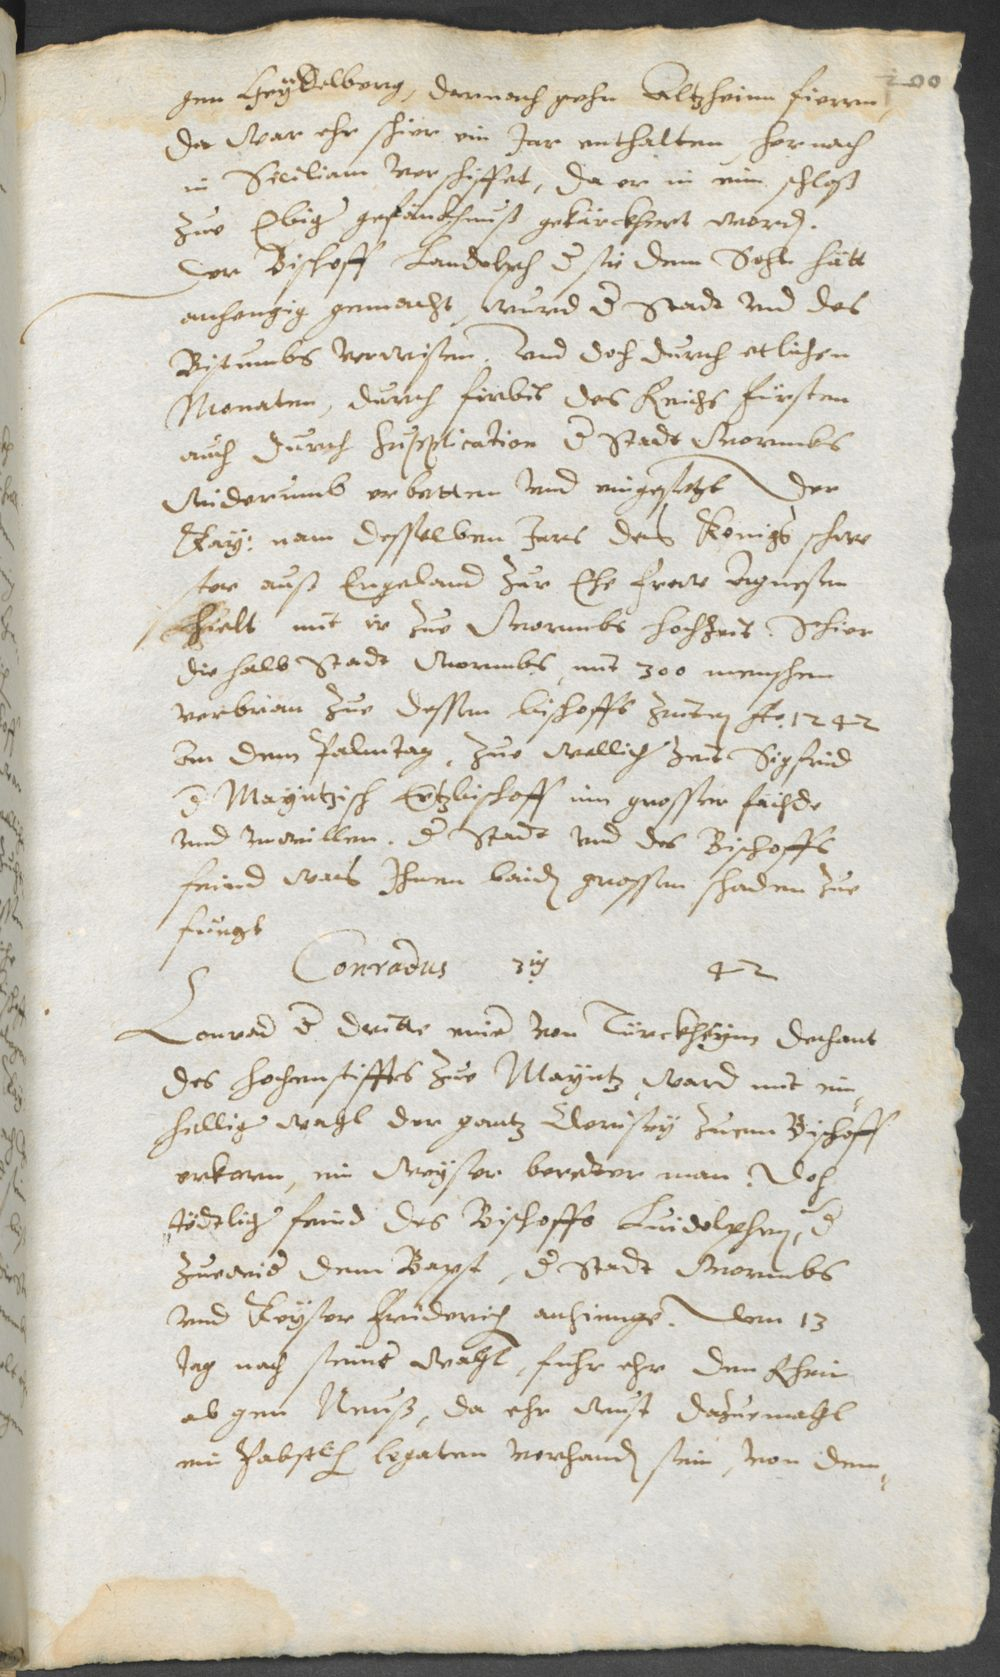 200
gen Heydelberg, darnach gehn Altzheim fieren,
da war ehr schier ein Jar enthalten, hernach
in Siciliam verschiffet, da er in ein schloß
zue Ewig gefänckhnuß gekärckhert word.
Der Bischoff Landolph d sie dem Sohn hätt
anhengig gemacht, wurd d Stadt vnd des
Bistumbs verwisen. Vnd doch durch etlichen
Monaten, durch fürbit des Reichs Fürsten
auch durch Supplication d Stadt Wormbs
widerumb erbetten vnd eingesetzt Der
Kay: nam desselben Jars des Königs schwe
ster auß Engeland zur Ehe fraw Agnesen
hielt mit ir zue Wormbs hochzeit. Schier
die halb Stadt Wormbs, mit 300 menschen
verbran zue dessen bischoffs zeiten Ao. 1242
An dem Palmtag, zue wellich zeit Sigfrid
d Mayntzisch Ertzbischoff inn grosser fechde
vnd vnwillen. d Stadt vnd des Bischoffs
feind was Ihnen baiden grossen schaden zue
fuegt
Conradus 3 42
Conrad d dritte einer von Türckheym dechant
des hochenstiffts zue Mayntz, ward mit ein¬
hellig wahl der gantz Clerisey zuem Bischoff
erkoren, ein weyser beredter man. Doch
tödtlich feind des Bischoffs Luidolphen, d
zuewid dem Bapst, d Stadt Wormbs
vnd Keyser Friderich anhienge. Den 13
tag nach seiner wahl, fuhr ehr den Rhein
ab gen Neuß, da ehr wust dazuemahl
ein Pabstlich legaten verhand sein, von dem¬